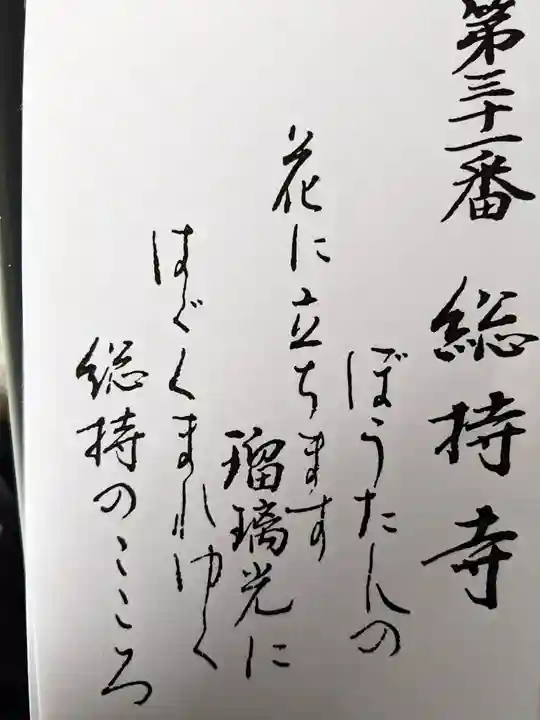 第三十一番 総持寺
ぼうたんの
花に立ちます
瑠璃光に
はぐくまれゆく
総持のこころ